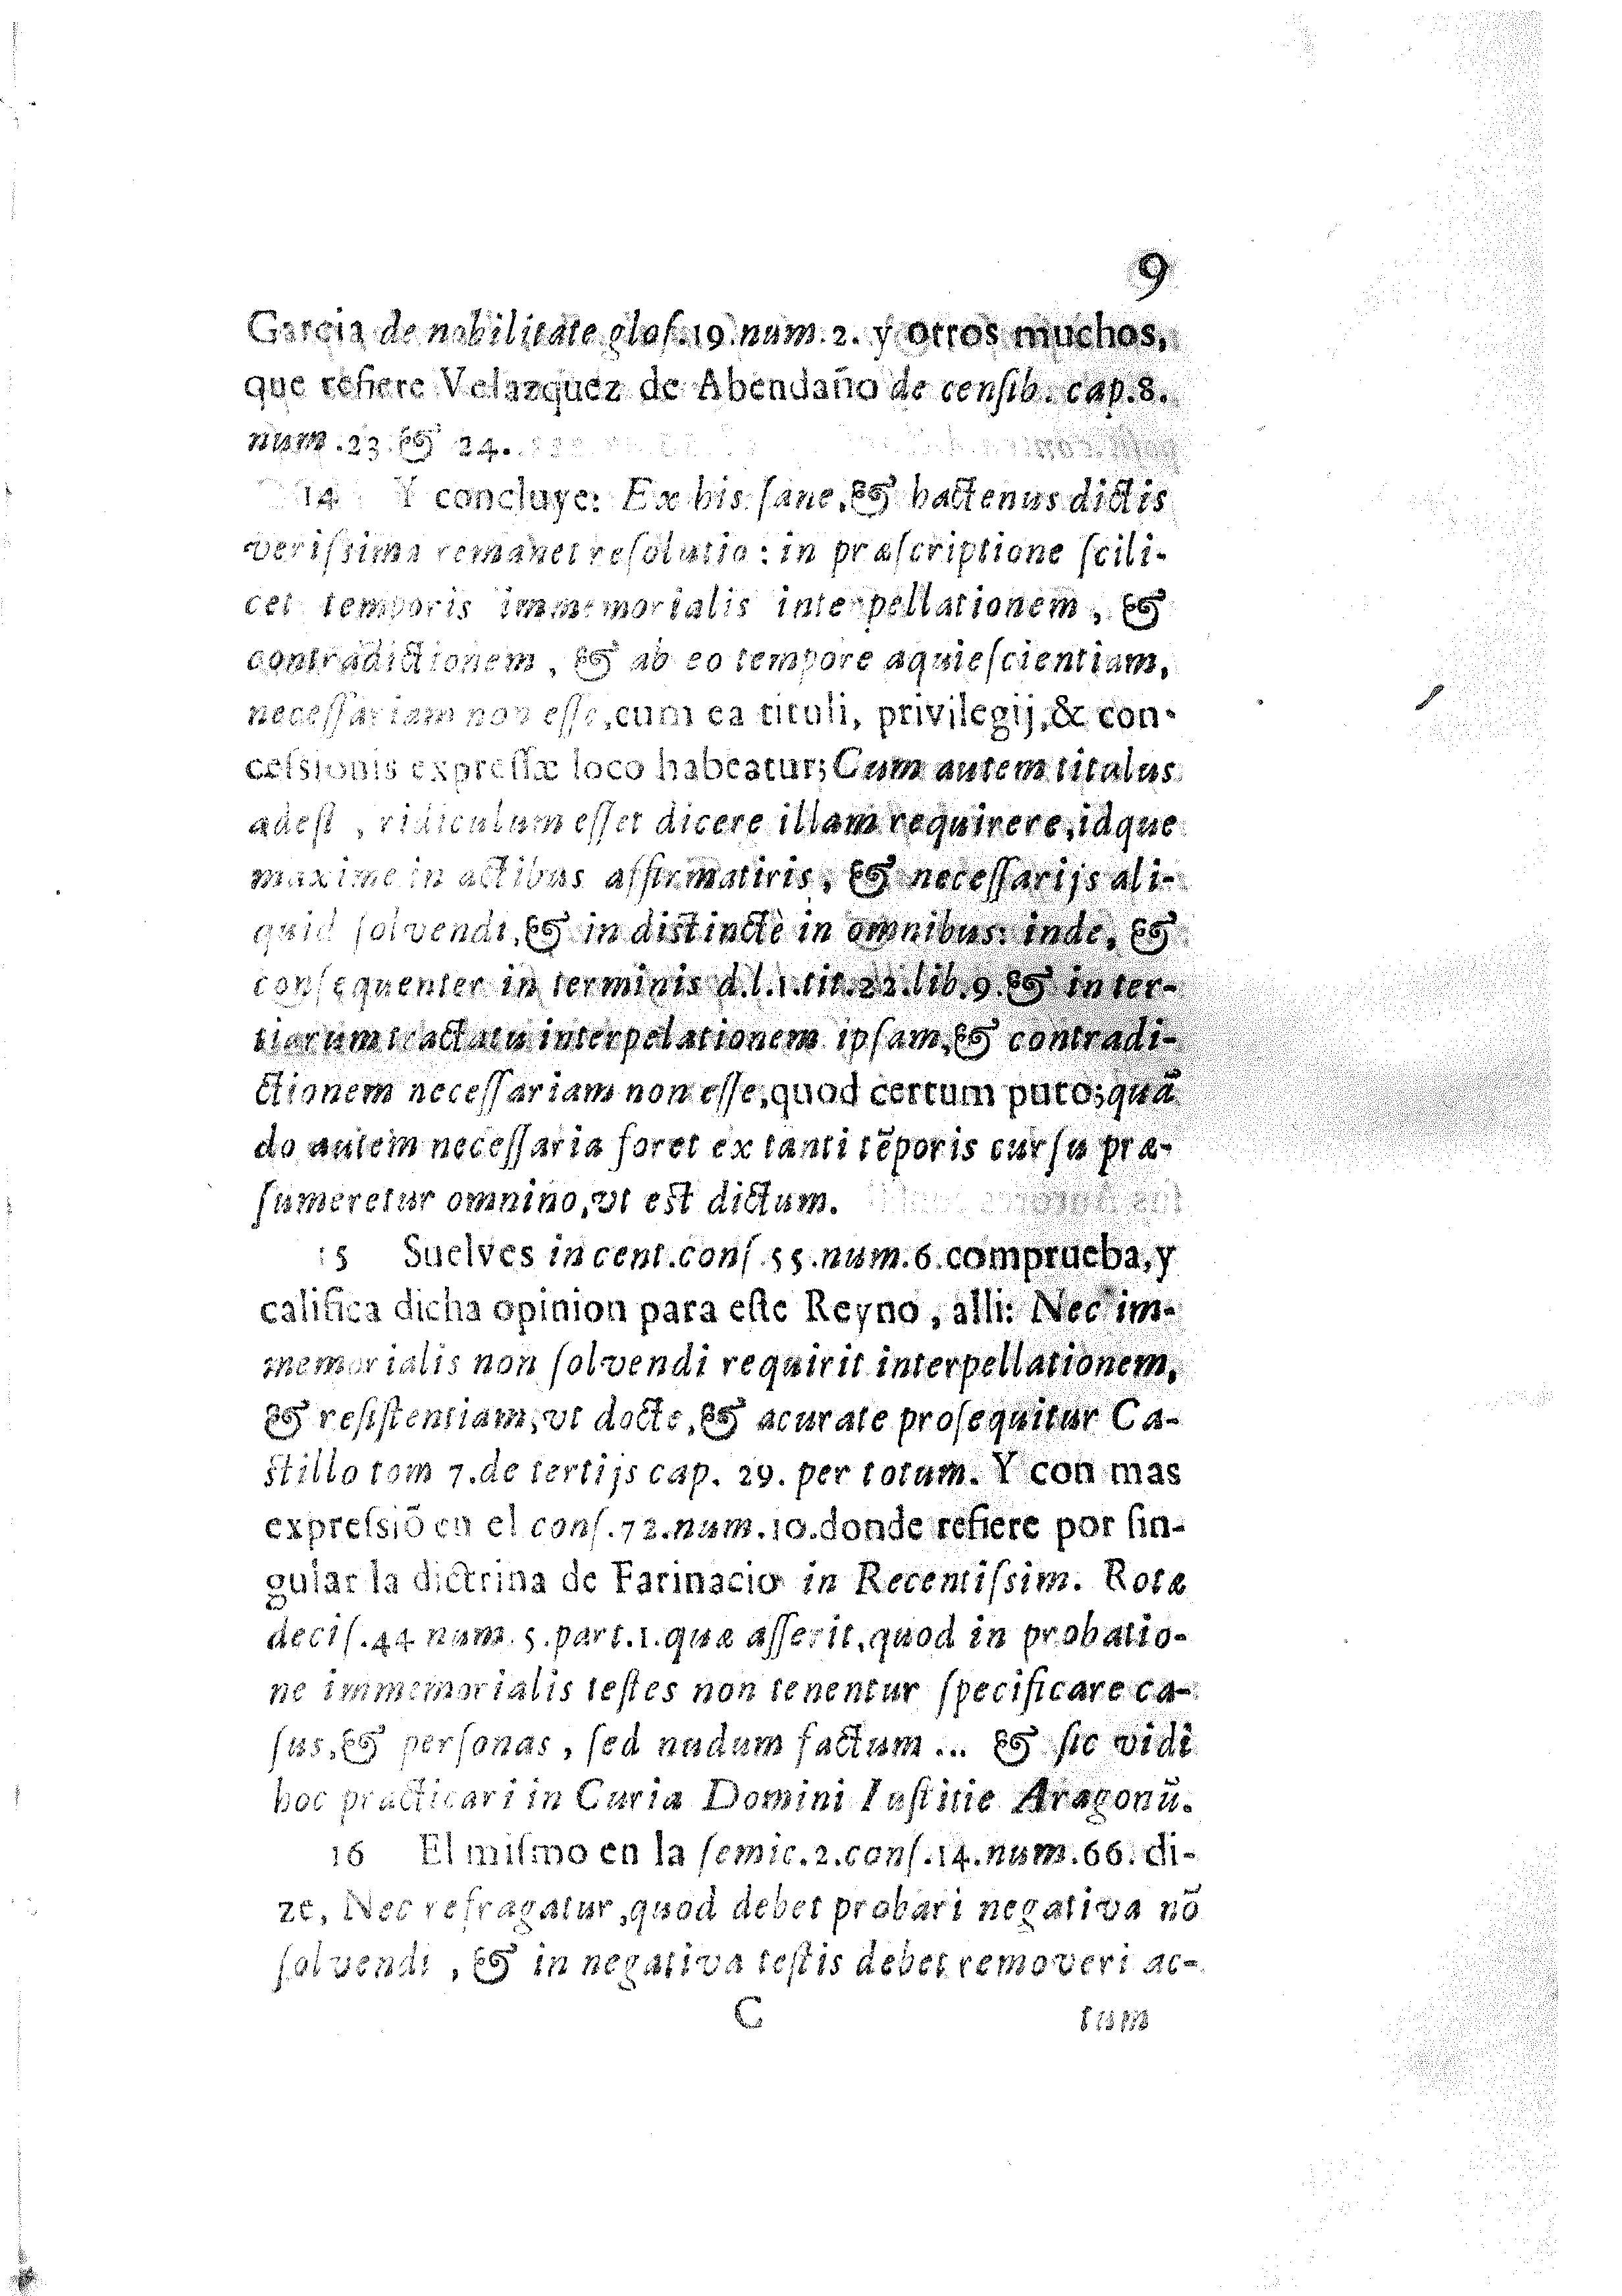 9
Garcia de nobilitate glos.19.num.2. y otros muchos,
que refiere Velazquez de Abendaño de censib. cap.8.
num.23.& 24.
14 Y concluye: Ex his sane,& hactenus dictis
verissima remanet resolutio: in præscriptione scili-
cet temporis immemorialis interpellationem, &
contradictionem, & ab eo tempore aquiescientiam,
necessariam non esse,cum ea tituli, privilegij,& con-
cessionis expressæ loco habeatur; Cum autem titulus
adest, ridiculum esset dicere illam requirere,idque
maxime in actibus affirmatiris, & necessarijs ali-
quid solvendi,& in distinctè in omnibus: inde, &
consequenter in terminis d.l.1.tit.22.lib.9.& in ter-
tiarum tractatu interpelationem ipsam,& contradi-
ctionem necessariam non esse,quod certum puto;quã
do autem necessaria foret ex tanti tẽporis cursu præ-
sumeretur omnino,vt est dictum.
15 Suelves in cent.cons.55.num.6.comprueba,y
califica dicha opinion para este Reyno, alli: Nec im-
memorialis non solvendi requirit interpellationem,
& resistentiam,vt docte,& acurate prosequitur Ca-
stillo tom 7.de tertijs cap. 29. per totum. Y con mas
expressiõ en el cons.72.num.10.donde refiere por sin-
gular la dictrina de Farinacio in Recentissim. Rotæ
decis.44 num.5.part.1.quæ asserit,quod in probatio-
ne immemorialis testes non tenentur specificare ca-
sus,& personas, sed nudum factum... & sic vidi
hoc practicari in Curia Domini Iustitie Aragonũ.
16 El mismo en la semic.2.cons.14.num.66. di-
ze, Nec refragatur,quod debet probari negativa nõ
solvendi, & in negativa testis debet removeri ac-
C